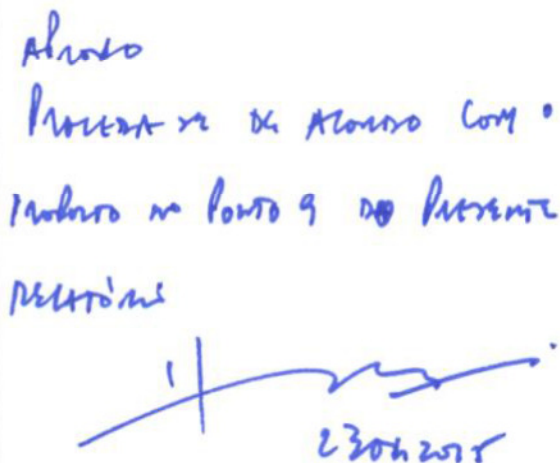 Aprovo
Proceda-se de acordo com o
proposto no ponto 9 do presente
relatório